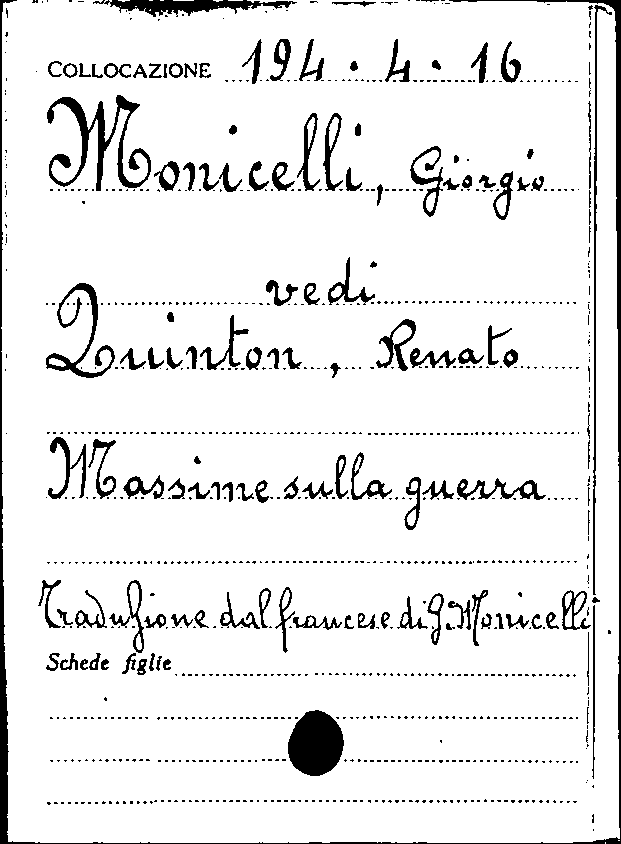 COLLOCAZIONE 194 · 4 · 16
Monicelli, Giorgio
vedi
Quinton, Renato
Massime sulla guerra
Traduzione dal francese di G. Monicelli
Schede figlie